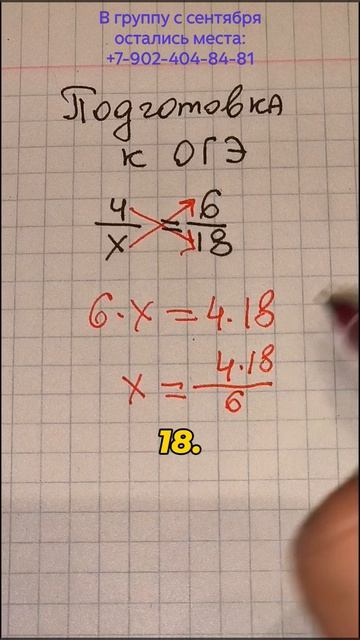 В группу с сентября
остались места:
+7-902-404-84-81
Подготовка
к ОГЭ
4/x = 6/18
6·x = 4·18
x = 4·18/6
18.